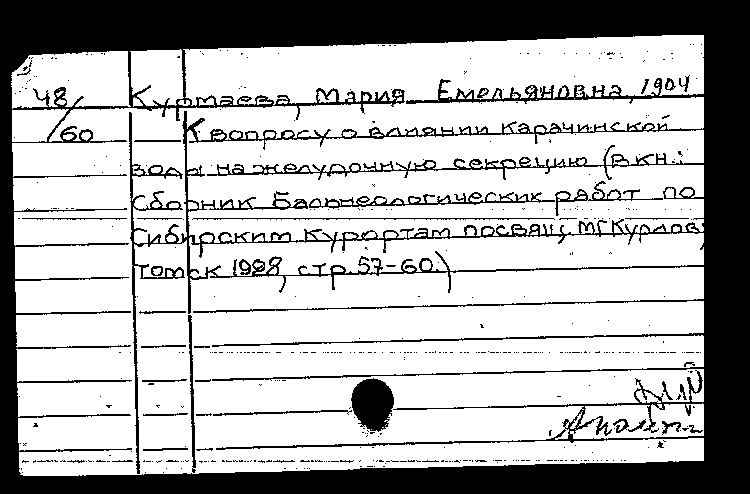 48/60
Куртаева, Мария Емельяновна, 1904
К вопросу о влиянии Карачинской
воды на желудочную секрецию (В кн.:
Сборник Бальнеологических работ по
Сибирским Курортам посвящ. М.Г. Курлов
Томск 1928, стр. 57-60.)